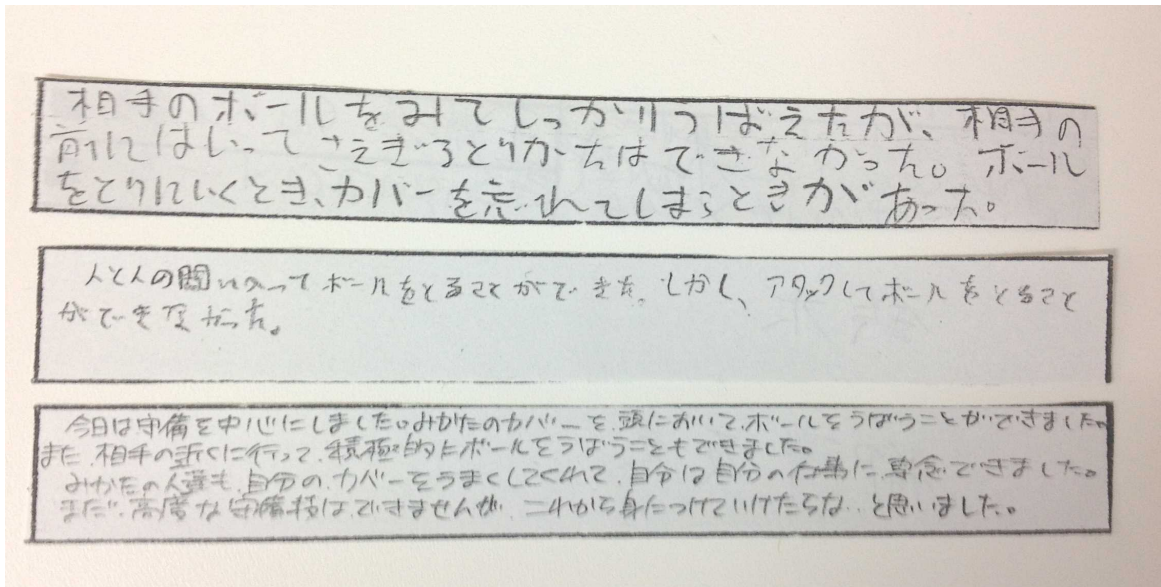 相手のボールをみてしっかりうばえたが、相手の
前にはいってさえぎるとりかたはできなかった。ボール
をとりにいくとき、カバーを忘れてしまうときがあった。
人と人の間に入ってボールをとることができた。しかし、アタックしてボールをとること
ができなかった。
今日は守備を中心にしました。みかたのカバーを、頭においてボールをうばうことができました。
また、相手の近くに行って、積極的にボールをうばうこともできました。
みかたの人達も、自分の、カバーをうまくしてくれて、自分は自分の仕事に、専念できました。
まだ、高度な守備技はできませんが、これから身につけていけたらな、と思いました。